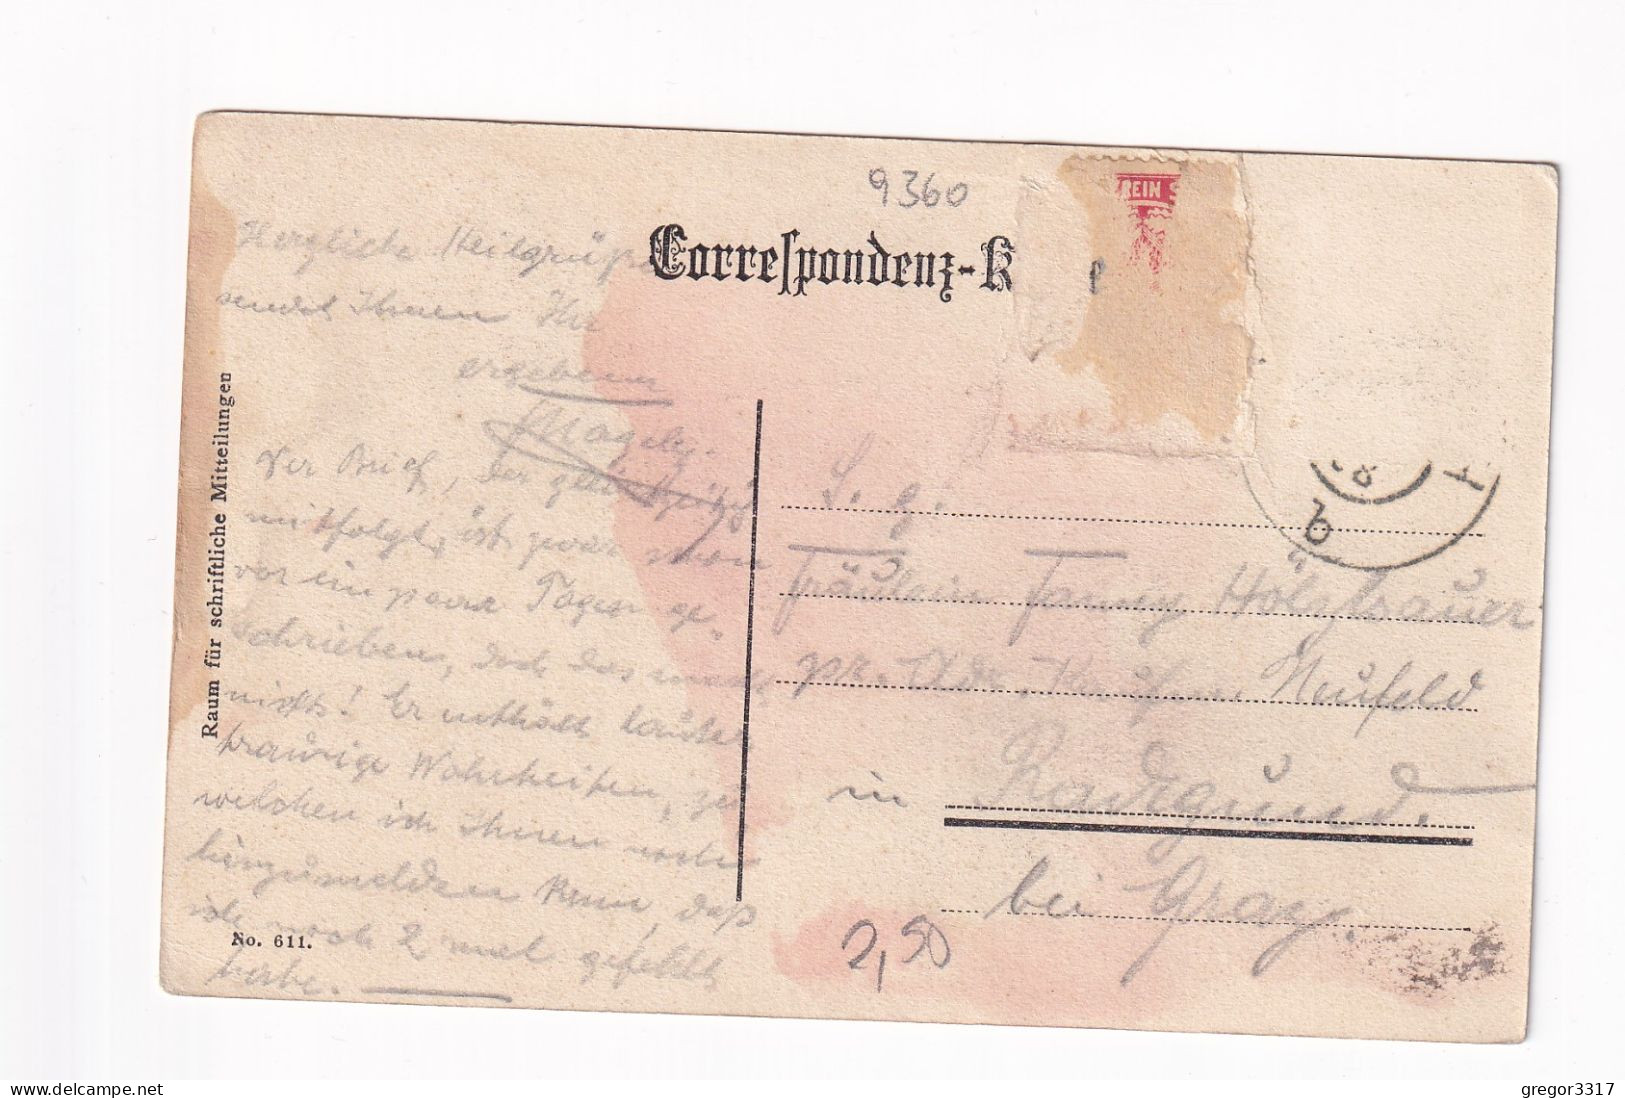 9360
Correspondenz-K
REIN S
Herzliche Heilgrüße
sendet Ihnen Ihr
ergebener
Der Brief, der
mitfolgt, ist zwar schon
vor ein paar Tagen ge-
schrieben, doch das macht
nichts! Er enthält lauter
traurige Wahrheiten, zu
welchen ich Ihnen noch
hinzumelden kann, daß
ich noch 2 mal gefehlt
habe.
Raum für schriftliche Mitteilungen
No. 611.
b
Fräulein Fanny Holzbauer
pr. Adr. Neufeld
in Radegund.
bei Graz.
2,50
gregor3317